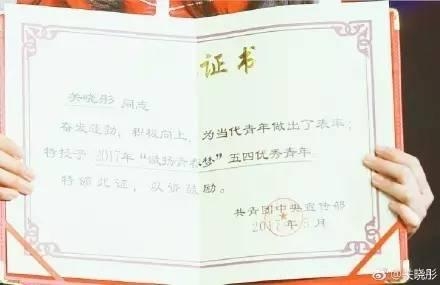 证书
关晓彤 同志
奋发蓬勃，积极向上，为当代青年做出了表率；
特授予 2017年“微扬青春梦”五四优秀青年
特颁此证，以资鼓励。
共青团中央宣传部
2017年5月
@关晓彤